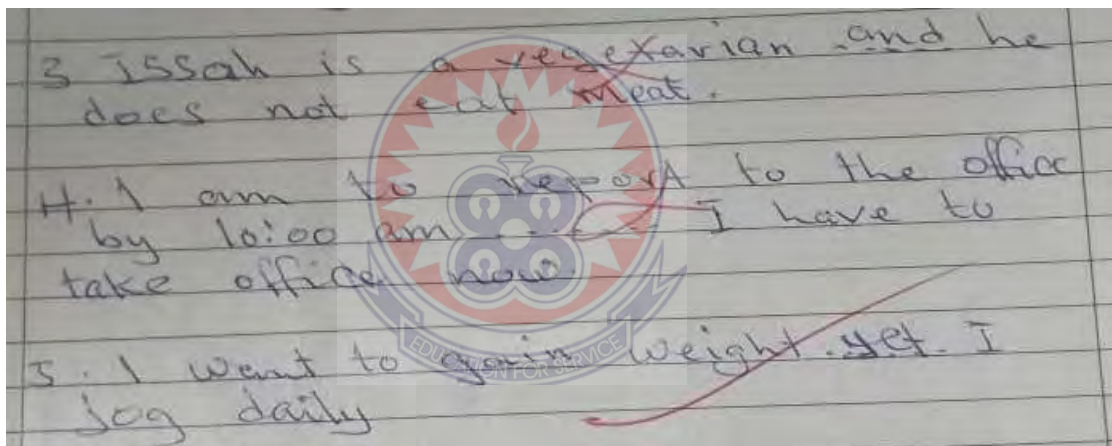 3 Issah is a vegetarian and he
does not eat meat.
4. I am to report to the office
by 10:00 am ...... I have to
take office now.
5. I want to gain weight yet I
jog daily
EDUCATION FOR SERVICE